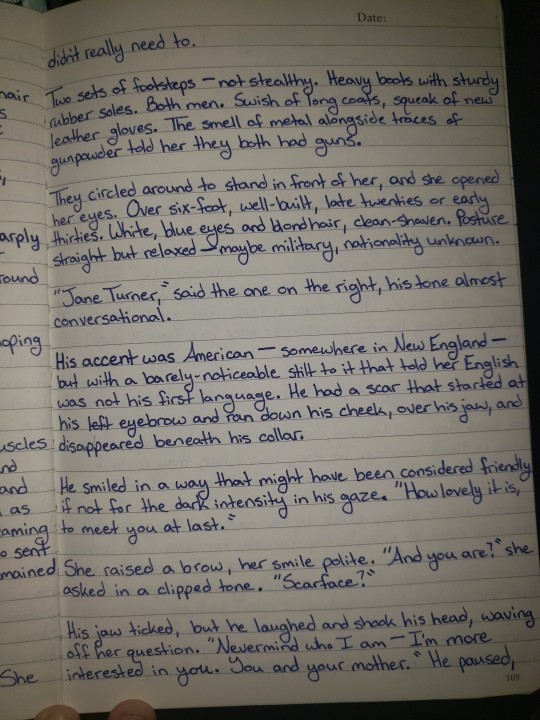 Date:
didn't really need to.
hair
s
Two sets of footsteps — not stealthy. Heavy boots with sturdy
rubber soles. Both men. Swish of long coats, squeak of new
leather gloves. The smell of metal alongside traces of
gunpowder told her they both had guns.
They circled around to stand in front of her, and she opened
her eyes. Over six-foot, well-built, late twenties or early
thirties. White, blue eyes and blond hair, clean-shaven. Posture
straight but relaxed — maybe military, nationality unknown.
arply
round
"Jane Turner," said the one on the right, his tone almost
conversational.
oping
His accent was American — somewhere in New England —
but with a barely-noticeable stilt to it that told her English
was not his first language. He had a scar that started at
his left eyebrow and ran down his cheek, over his jaw, and
disappeared beneath his collar.
uscles
nd
and
as
eaming
o sent
mained
He smiled in a way that might have been considered friendly
if not for the dark intensity in his gaze. "How lovely it is,
to meet you at last."
She raised a brow, her smile polite. "And you are?" she
asked in a clipped tone. "Scarface?"
His jaw ticked, but he laughed and shook his head, waving
off her question. "Nevermind who I am — I'm more
interested in you. You and your mother." He paused,
She
109